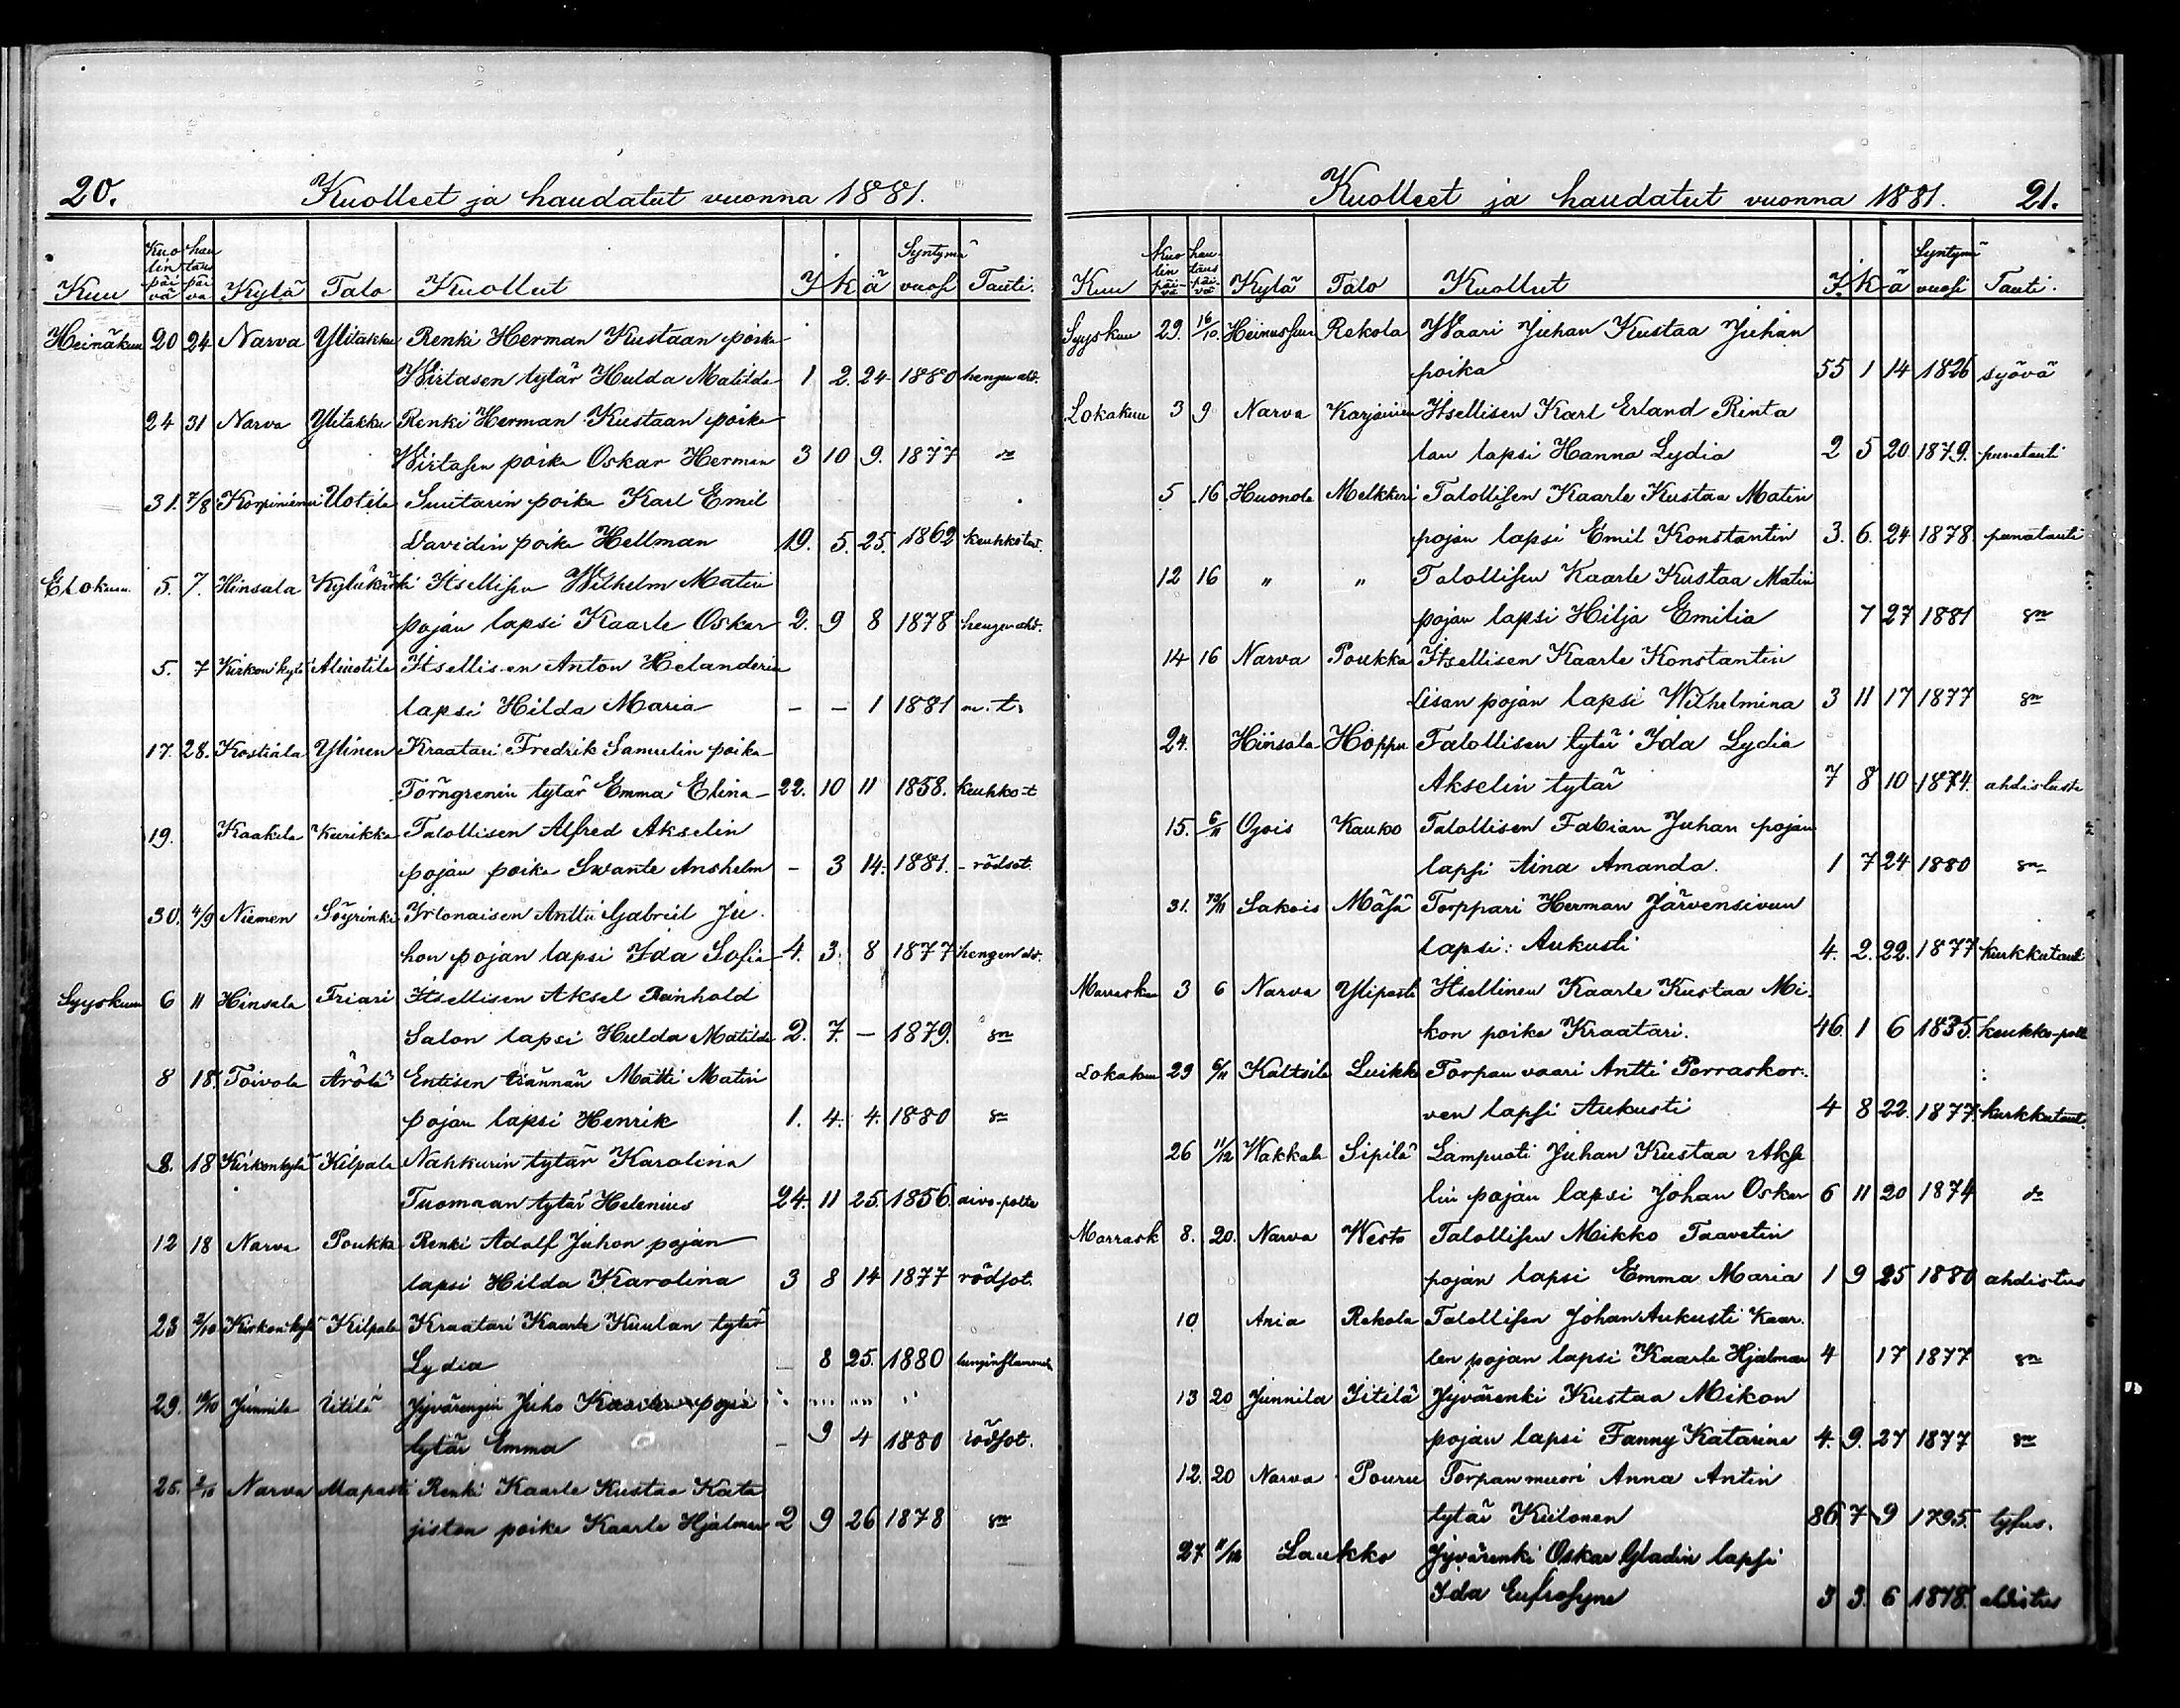 20. Kuolleet ja haudatut vuonna 1881.
Kuu Kuolinpäivä hautauspäivä Kylä Talo Kuollut I k ä Syntymä vuosi Tauti.
Heinäkuu 20 24 Narva Ylitakku Renki Herman Kustaan poika
Wirtasen tytär Hulda Matilda 1. 2. 24 1880 hengen ahd.
24 31 Narva Ylitakku Renki Herman Kustaan poika
Wirtasen poika Oskar Herman 3 10 9. 1877 do
31. 7/8 Korpiniemi Uotila Suutarin poika Karl Emil
Davidin poika Hellman 19. 5. 25. 1862 keuhkotaut.
Elokuu 5. 7. Hinsala Itsellisen Wilhelm Matin
pojan lapsi Kaarle Oskar 2. 9 8 1878 hengen ahd.
5. 7 Kirkonkylä Alinotila Itsellisen Anton Helanderin
lapsi Hilda Maria – – 1 1881 m. t.
17. 28. Kostiala Ylinen Kraatari Fredrik Samulin poika
Törngrenin tytär Emma Elina 22. 10 11 1858. keuhko-t
19. Kaakila Kurikka Talollisen Alfred Akselin
pojan poika Swante Anshelm – 3 14. 1881. rödsot.
30. 4/9 Niemen Söyrinki Irtonaisen Antti Gabriel Ju-
hon pojan lapsi Ida Sofia 4. 3. 8 1877 hengen ahd.
Syyskuu 6 11 Hinsala Friari Itsellisen Aksel Reinhold
Salon lapsi Hulda Matilda 2. 7. – 1879. sm
8 18. Toivola Arola Entisen Isännän Matti Matin
pojan lapsi Henrik 1. 4. 4. 1880 sm
8. 18 Kirkonkylä Kilpala Nahkurin tytär Karolina
Tuomaan tytär Helenius 24. 11 25. 1856. aivo-poltto
12 18 Narva Poukka Renki Adolf Juhon pojan
lapsi Hilda Karolina 3 8 14 1877 rödsot.
23 Kirkonkylä Kilpala Kraatari Kaarle Kuulan tytär
Lydia – 8 25. 1880
29. Junnila Iitilä Jyvärengin Juho Kaarlen pojan
tytär Emma – 9 4 1880 rödsot.
25. 2/10 Narva Mapasti Renki Kaarle Kustaa Kata
jiston poika Kaarle Hjalmar 2 9 26 1878 sm
Kuolleet ja haudatut vuonna 1881. 21.
Kuu Kuolinpäivä hautauspäivä Kylä Talo Kuollut I. k ä Syntymä vuosi Tauti.
Syyskuu 29. 16/10. Heinussuu Rekola Waari Juhan Kustaa Juhan
poika 55 1 14 1826 syövä
Lokakuu 3 9 Narva Karjainen Itsellisen Karl Erland Rinta
lan lapsi Hanna Lydia 2 5 20 1879. punatauti
5 16 Huonola Melkkeri Talollisen Kaarle Kustaa Matin
pojan lapsi Emil Konstantin 3. 6. 24 1878. punatauti
12 16 " " Talollisen Kaarle Kustaa Matin
pojan lapsi Hilja Emilia 7 27 1881 sm
14 16 Narva Poukka Itsellisen Kaarle Konstantin
Iisan pojan lapsi Wilhelmina 3 11 17 1877 sm
24. Hinsala Hoppu Talollisen tytär Ida Lydia
Akselin tytär 7 8 10 1874. ahdistusta
15. 6/11 Ojois Kauko Talollisen Fabian Juhan pojan
lapsi Aina Amanda. 1 7 24 1880 sm
31. 13/11 Sakois Mäsä Torppari Herman Järvensivun
lapsi: Aukusti 4. 2. 22. 1877 kurkkutauti
Marraskuu 3 6 Narva Ylipasti Itsellinen Kaarle Kustaa Mi-
kon poika Kraatari. 46. 1 6 1835. keukko-poltt
Lokakuu 29 6/11 Kaltsila Luikku Torpan vaari Antti Porraskor-
ven lapsi Aukusti 4 8 22. 1877. kurkkutaut.
26 11/12 Wakkala Sipilä Lampuoti Juhan Kustaa Akse
lin pojan lapsi Johan Oskar 6 11 20 1874 do
Marrask 8. 20. Narva Westo Talollisen Mikko Taavetin
pojan lapsi Emma Maria 1 9 25 1880 ahdistus
10 Ania Rekola Talollisen Johan Aukusti Kaar-
len pojan lapsi Kaarle Hjalmar 4 17 1877 sm
13 20 Junnila Iitilä Jyvärenki Kustaa Mikon
pojan lapsi Fanny Katarina 4. 9. 27 1877 sm
12. 20 Narva Pouru Torpan muori Anna Antin
tytär Kiilonen 86. 7 9 1795. tyfus.
27 11/12 Laukko Jyvärenki Oskar Gladin lapsi
Ida Eufrosyne 3 3. 6 1878. ahdistus